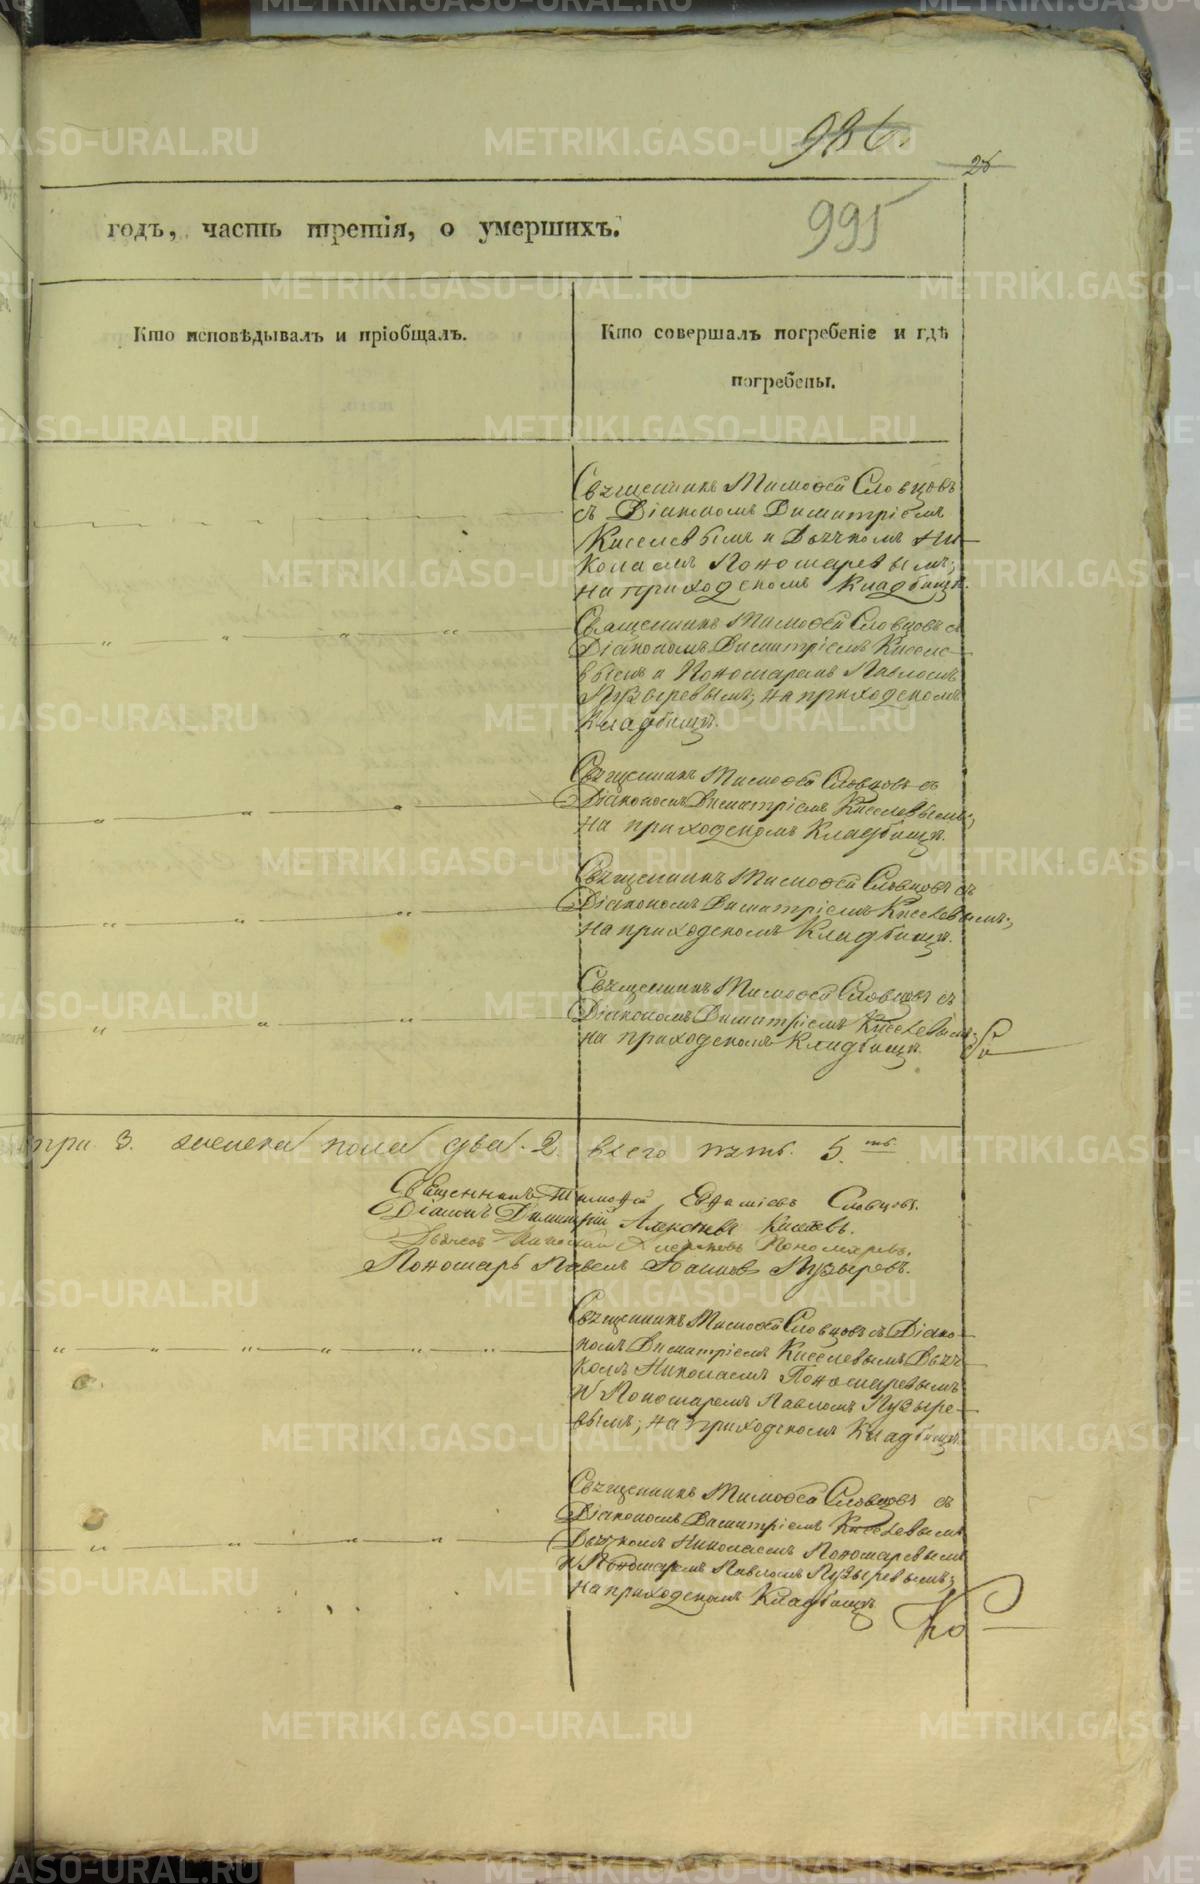 986.
26
годъ, часть третія, о умершихъ.
995
Кто исповѣдывалъ и пріобщалъ.
Кто совершалъ погребеніе и гдѣ
погребены.
Священникъ Тимофей Словцовъ
съ Діакономъ Димитріемъ
Киселевымъ и Дьячкомъ Ни-
колаемъ Пономаревымъ;
на приходскомъ Кладбищѣ.
Священникъ Тимофей Словцовъ съ
Діакономъ Димитріемъ Кисele-
вымъ и Пономаремъ Павломъ
Пузыревымъ; на приходскомъ
Кладбищѣ.
Священникъ Тимофей Словцовъ съ
Діакономъ Димитріемъ Киселевымъ;
на приходскомъ Кладбищѣ.
Священникъ Тимофей Словцовъ съ
Діакономъ Димитріемъ Киселевымъ;
на приходскомъ Кладбищѣ.
Священникъ Тимофей Словцовъ съ
Діакономъ Димитріемъ Киселевымъ;
на приходскомъ Кладбищѣ.
три 3. женска пола два. 2 всего пять. 5.ть
Священникъ Тимофей Словцовъ.
Діаконъ Димитрій Алексѣевъ Киселевъ.
Дьячокъ Николай Пономаревъ.
Пономарь Павелъ Іоанновъ Пузыревъ.
Священникъ Тимофей Словцовъ съ Діако-
номъ Димитріемъ Киселевымъ Дьяч-
комъ Николаемъ Пономаревымъ
и Пономаремъ Павломъ Пузыре-
вымъ; на приходскомъ Кладбищѣ.
Священникъ Тимофей Словцовъ съ
Діакономъ Димитріемъ Киселевымъ
Дьячкомъ Николаемъ Пономаревымъ
и Пономаремъ Павломъ Пузыревымъ;
на приходскомъ Кладбищѣ.
METRIKI.GASO-URAL.RU